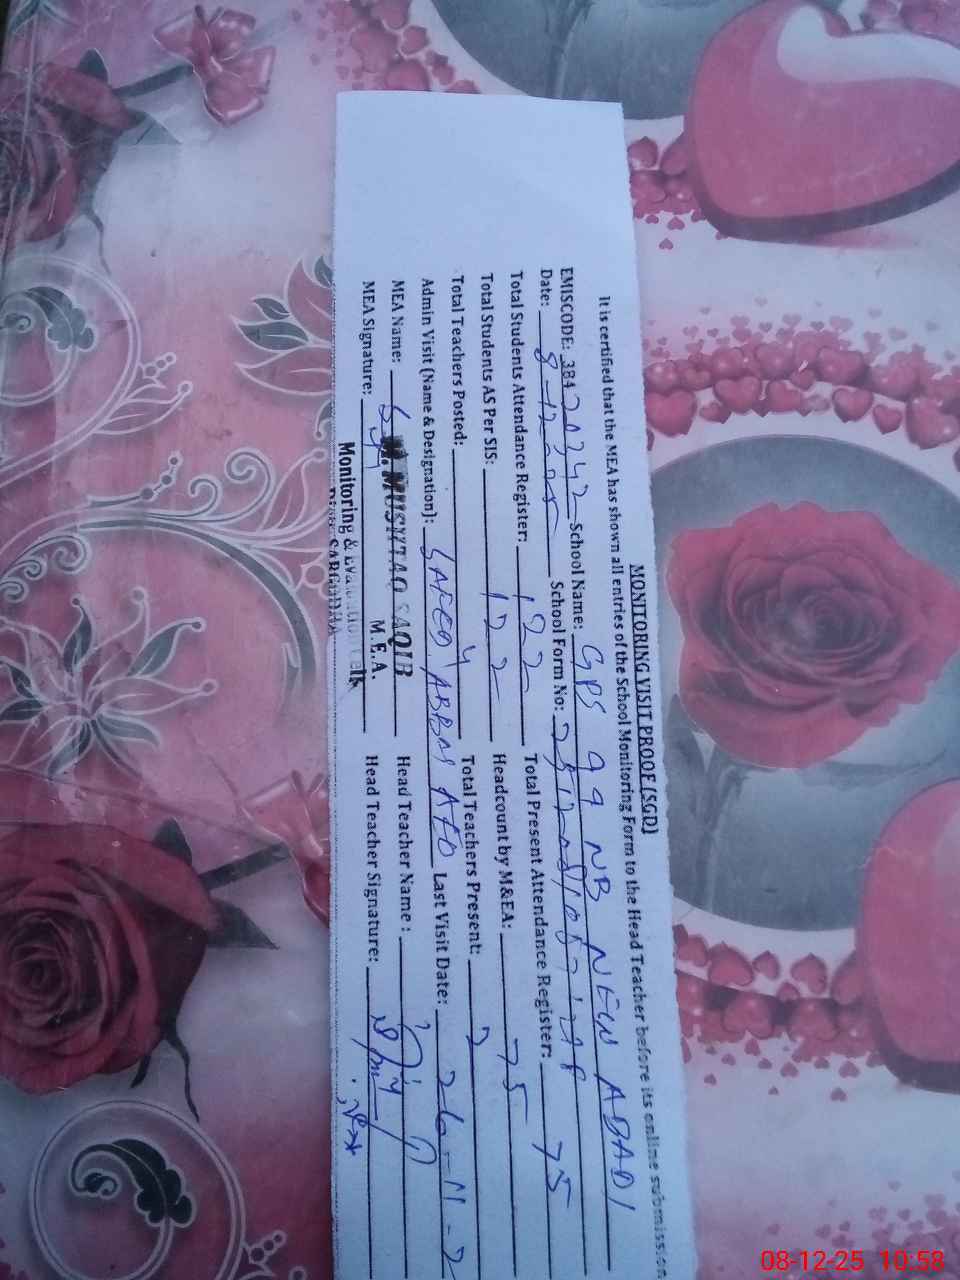 MONITORING VISIT PROOF (SGD)
It is certified that the MEA has shown all entries of the School Monitoring Form to the Head Teacher before its online submission
EMISCODE: 38420342 School Name: GPS 99 NB NEW ABADI
Date: 8-12-25 School Form No:
Total Students Attendance Register: 122 Total Present Attendance Register: 75
Total Students AS Per SIS: 122 Headcount by M&EA: 75
Total Teachers Posted: 4 Total Teachers Present:
Admin Visit (Name & Designation): SAEED ABBAS AEO Last Visit Date: 26-11-2
MEA Name: M. MUSHTAQ SAQIB Head Teacher Name:
MEA Signature: M.E.A. Head Teacher Signature:
Monitoring & Evaluation Cell
SARGODHA
08-12-25 10:58